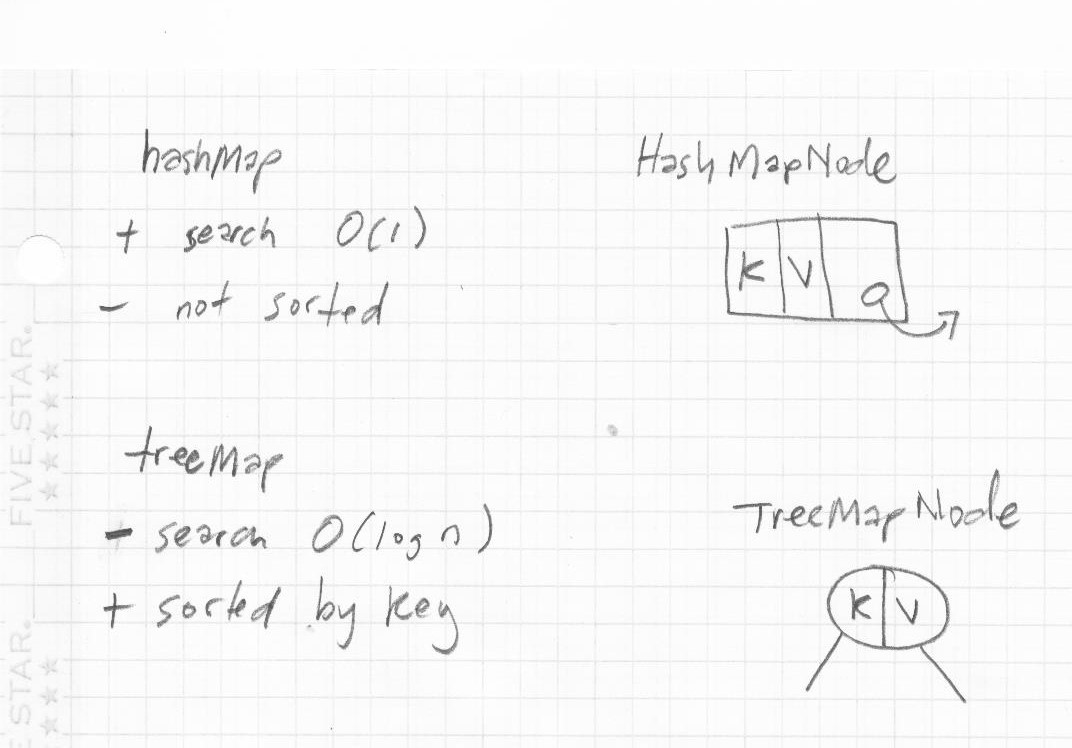 hashMap
+ search O(1)
- not sorted
HashMapNode
K V
treeMap
- search O(log n)
+ sorted by key
TreeMapNode
K V
FIVE STAR.
FIVE STAR.